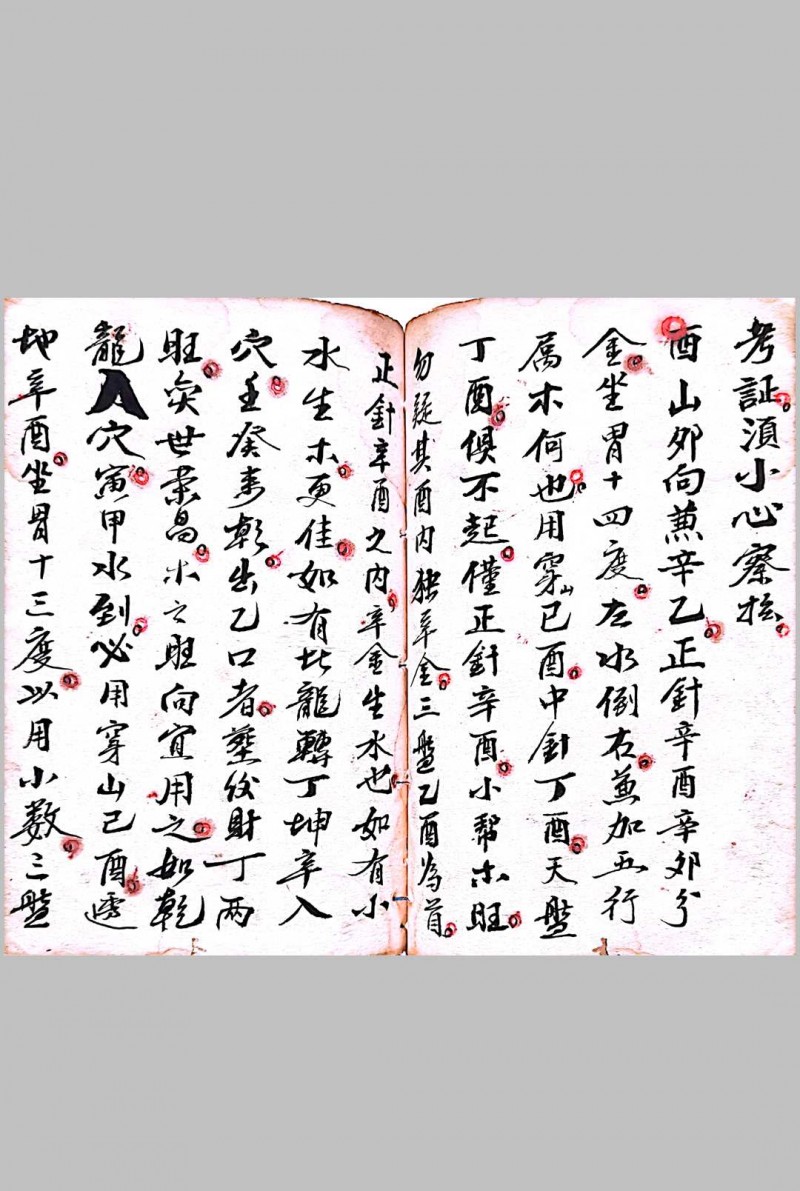 考証湏小心察極
酉山夘向兼辛乙正針辛酉辛夘分
金坐胃十四度左水倒右兼加五行
属木何也用穿山己酉中針丁酉天盤
丁酉俱不起僅正針辛酉小帮木旺
勿疑其酉内独辛金三盤乙酉為首
正針辛酉之内辛金生水也如有小
水生木更佳如有此龍轉丁坤辛入
穴壬癸来乾出乙口者葬後財丁兩
旺奕世荣昌木之旺向宜用之如乾
龍入穴寅甲水到必用穿山己酉透
地辛酉坐胃十三度以用小数三盤